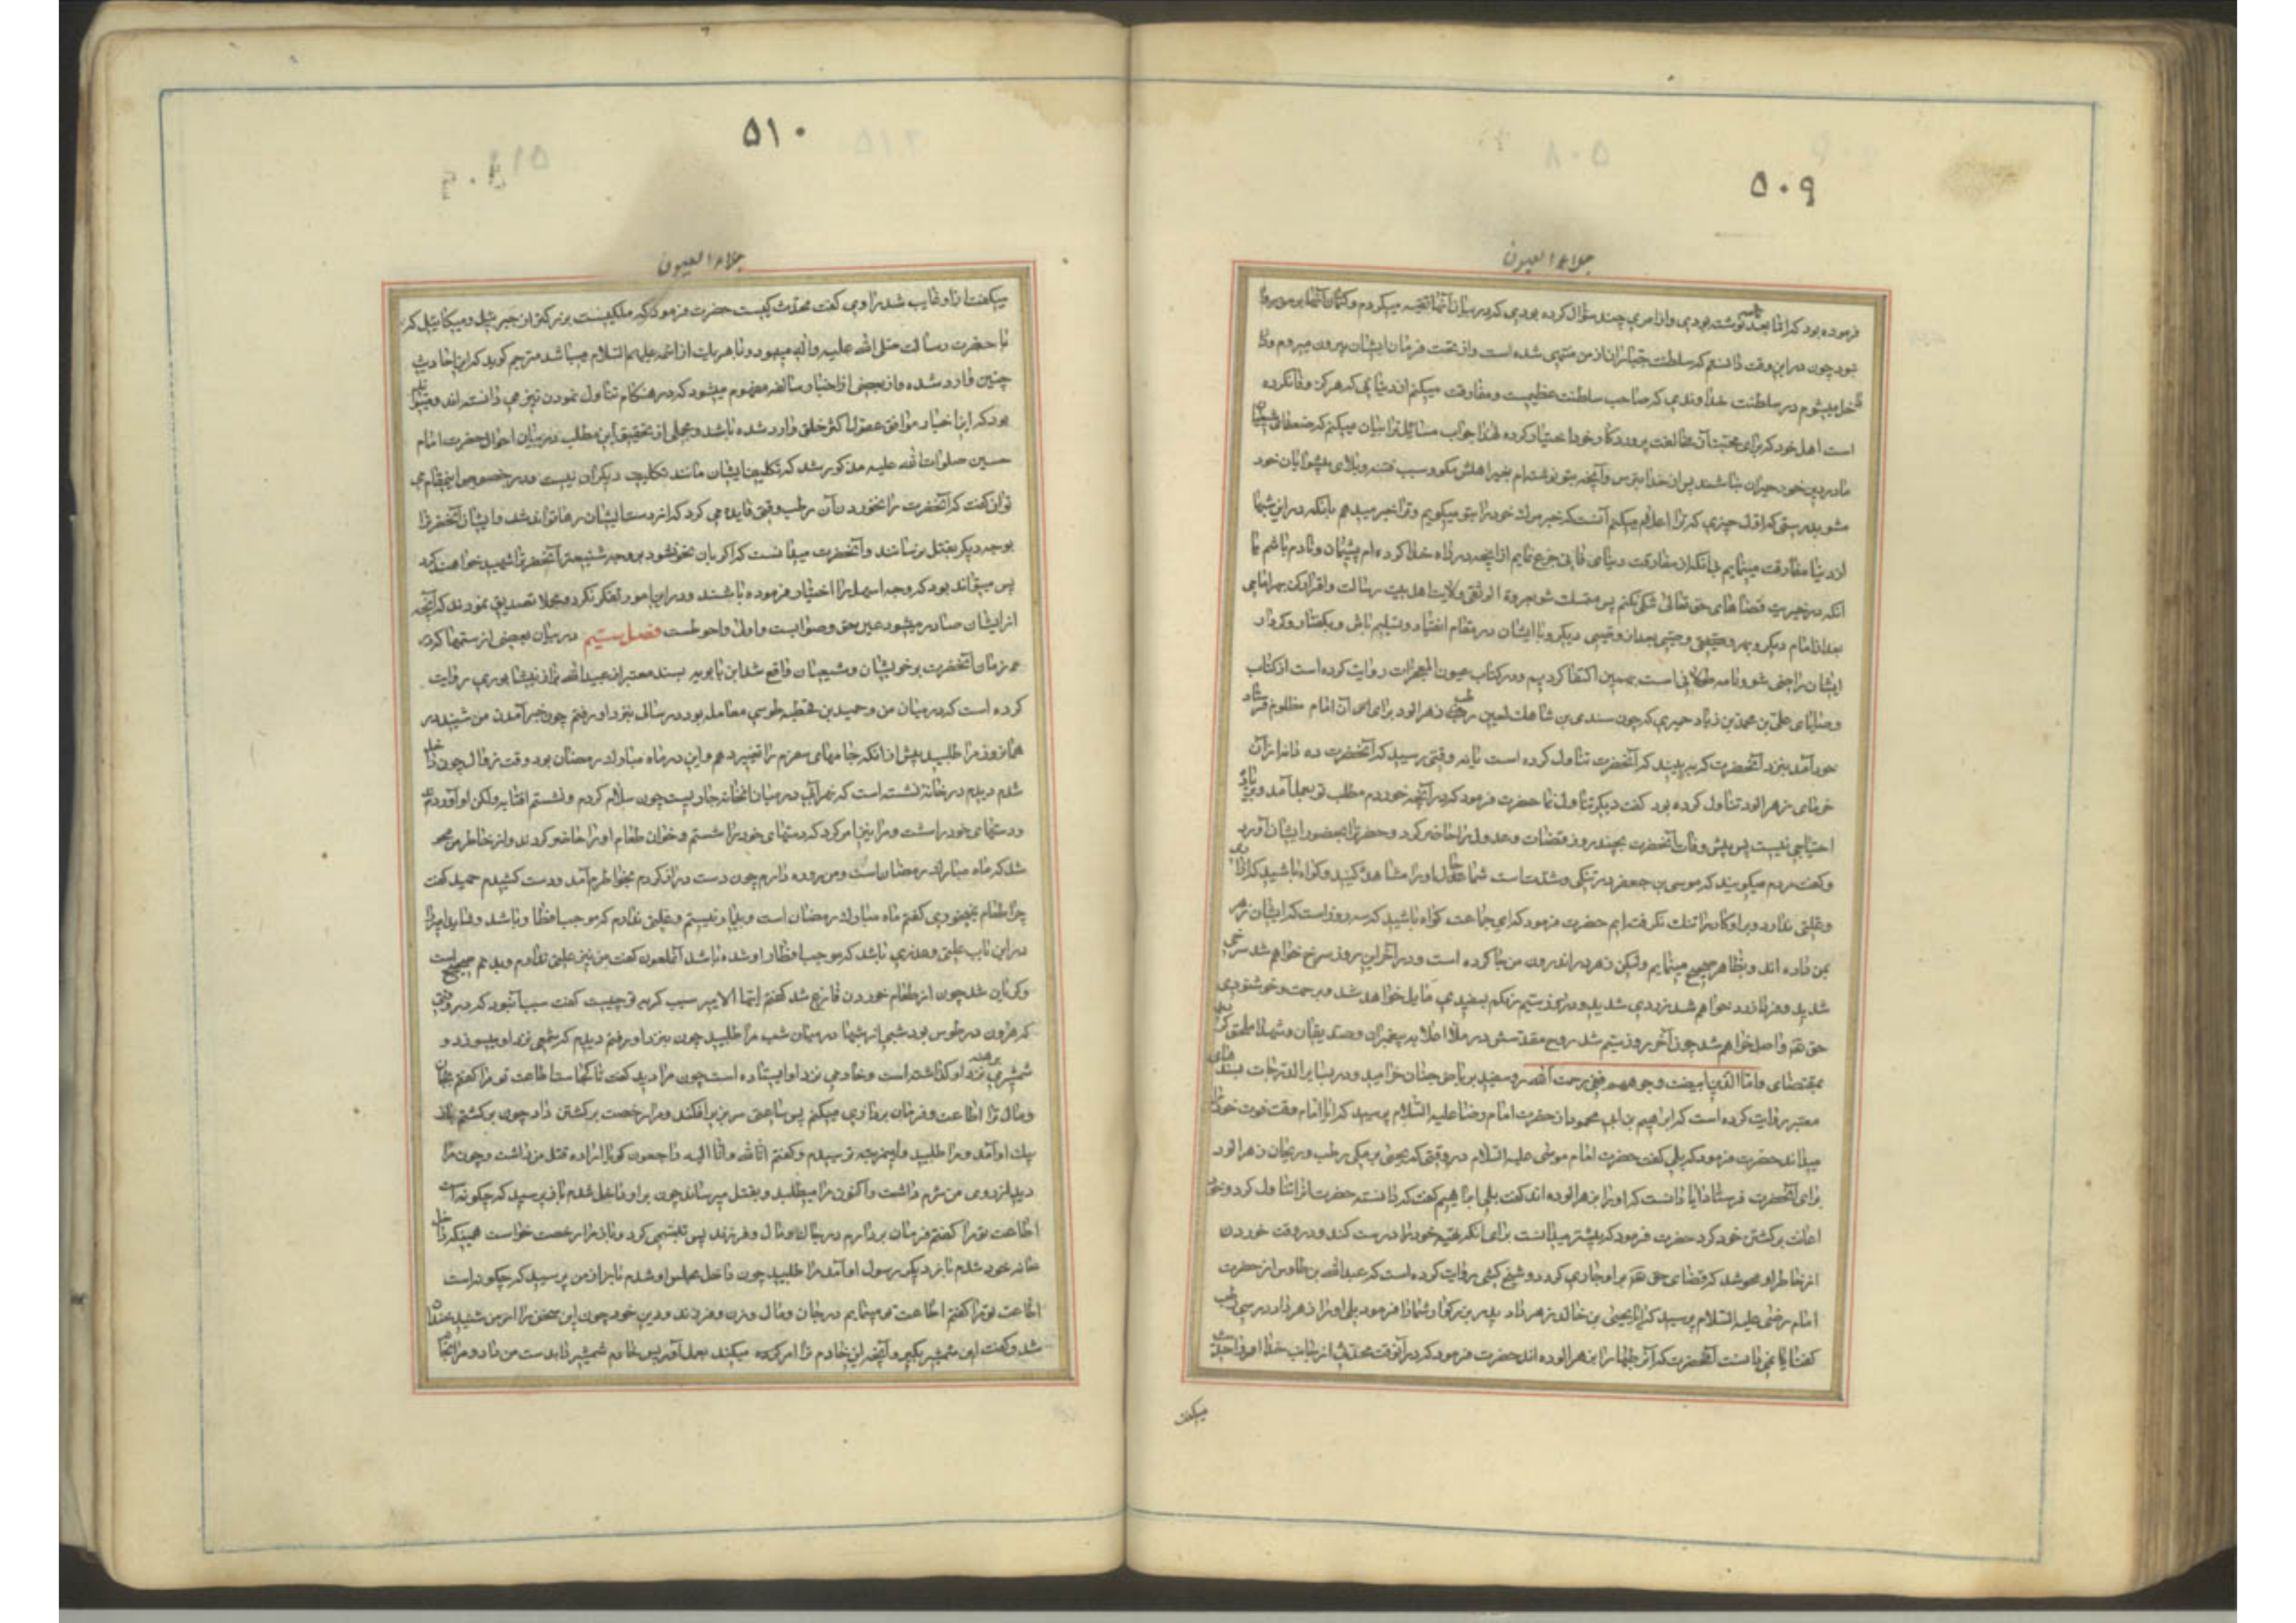 ۵۰۹
جلاء العیون
فرموده بود که اما بعد نوشته بودی و از امری چند سؤال کرده بودی که در بیان آنها تقیه میکردم و کتمان آنها بر من روا
نبود چون در این وقت دانستم که سلطنت جباران از من منتهی شده است و از تحت فرمان ایشان بیرون میروم و دا
خل میشوم در سلطنت خداوندی که صاحب سلطنت عظیمست و مفارقت میکنم از دنیایی که هرگز وفا نکرده
است اهل خود که برای محبت آن مخالفت پروردگار خود اختیار کرده لهذا جواب مسائل ترا بیان میکنم که ضعفای شیعیان
ما در دین خود حیران نباشند پس از خدا بترس و آنچه بتو نوشته‌ام بغیر اهلش مگو و سبب فتنه و بلای پیشوایان خود
مشو بدرستی که اول چیزی که ترا اعلام میکنم آنست که خبر مرگ خود را بتو میگویم و ترا خبر میدهم بآنکه در این شبها
از دنیا مفارقت مینمایم بی‌آنکه از مفارقت دنیای فانی جزع نمایم از آنچه در راه خدا کرده‌ام پشیمان و نادم باشم یا
آنکه در خیریت قضاهای حق تعالی شکی بکنم پس متمسک شو بعروة الوثقی ولایت اهل بیت رسالت و اقرار کن بهر امامی
بعد از امام دیگر و بهر وصیی بعد از وصیی دیگر و با ایشان در مقام انقیاد و تسلیم باش و بگفتار و کردار
ایشان راضی شو و نامه طولانی است بهمین اکتفا کردیم و در کتاب عیون المعجزات روایت کرده است از کتاب
وصایای علی بن محمد بن زیاد حمیری که چون سندی بن شاهک لعین رطب زهرآلود برای آن امام مظلوم فرستاد
خود آمد بنزد آنحضرت که ببیند که آنحضرت تناول کرده است یا نه وقتی رسید که آنحضرت ده دانه از آن
خرمای زهرآلود تناول کرده بود گفت دیگر تناول نما حضرت فرمود که در آنچه خوردم مطلب تو بعمل آمد و بزیاده
احتیاجی نیست پس پیش از وفات آنحضرت بچند روز قضات و عدول را حاضر کرد و حضرت را بحضور ایشان آورد
و گفت مردم میگویند که موسی بن جعفر در تنگی و شدت است شما حال او را مشاهده کنید و گواه باشید که آزار
و علتی ندارد و بر او کار را تنگ نگرفته‌ایم حضرت فرمود که ای جماعت گواه باشید که سه روز است که ایشان زهر
بمن داده‌اند و بظاهر صحیح مینمایم ولیکن زهر در اندرون من جا کرده است و در آخر این روز سرخ خواهم شد سرخی
شدید و فردا زرد خواهم شد زردی شدید و در روز سیم رنگم بسفیدی مایل خواهد شد و برحمت و خوشنودی
حق تعالی واصل خواهم شد چون آخر روز سیم شد روح مقدسش در ملأ اعلا به پیغمبران و صدیقان و شهدا ملحق گردید
بمقتضای و اما الذین ابیضت وجوههم ففی رحمت الله روسفید بریاض جنان خرامید و در بصایر الدرجات بسندهای
معتبر روایت کرده است که ابراهیم بن ابی محمود از حضرت امام رضا علیه السلام پرسید که آیا امام وقت فوت خود را
میداند حضرت فرمود که بلی گفت حضرت امام موسی علیه السلام در وقتی که یحیی برمکی رطب و ریحان زهرآلود
برای آنحضرت فرستاد آیا دانست که او را بزهر آلوده‌اند گفت بلی ابراهیم گفت که دانسته حضرت آنرا تناول کرد و خود
اعانت بر کشتن خود کرد حضرت فرمود که پیشتر میدانست برای آنکه تهیه خود را درست کند و در وقت خوردن
از خاطر او محو شد که قضای حق تعالی بر او جاری گردد و شیخ کشی روایت کرده است که عبدالله بن طاوس از حضرت
امام رضی علیه السلام پرسید که آیا یحیی بن خالد زهر داد پدر بزرگوار شما را فرمود بلی او را زهر داد در سی رطب
گفت آیا نمی‌دانست آنحضرت که آن رطبها را بزهر آلوده‌اند حضرت فرمود که در آنوقت محدث از جانب خدا
میگفت
۵۱۰
جلاء العیون
میگفت از او غایب شد راوی گفت محدث کیست حضرت فرمود که ملکیست بزرگتر از جبرئیل و میکائیل که
با حضرت رسالت صلی الله علیه و آله میبود و با هر یک از ائمه علیهم السلام میباشد مترجم گوید که این احادیث
چنین وارد شده و از بعضی از اخبار سالفه مفهوم میشود که در هنگام تناول نمودن نیز می‌دانسته‌اند و میتواند
بود که این اخبار موافق عقول اکثر خلق وارد شده باشد و مجملی از تحقیق این مطلب در بیان احوال حضرت امام
حسین صلوات الله علیه مذکور شد که تکلیف ایشان مانند تکلیف دیگران نیست و در خصوص این مقام می
توان گفت که آنحضرت را نخوردن آن رطب وقتی فایده می‌کرد که از دست ایشان رها تواند شد و ایشان آنحضرت را
بوجه دیگر بقتل نرسانند و آنحضرت میدانست که اگر بآن نحو نشود بر وجه شنیعتر آنحضرت را شهید خواهند کرد
پس میتواند بود که وجه اسهل را اختیار فرموده باشند و در این امور تفکر نکردن و مجملا تصدیق نمودن که آنچه
از ایشان صادر میشود عین حق و صوابست و اولی و احوطست فصل سیم در بیان بعضی از ستمها که در
زمان آنحضرت بر خویشان و شیعیان واقع شد ابن بابویه بسند معتبر از عبیدالله بزاز نیشابوری روایت
کرده است که در میان من و حمید بن قحطبه طوسی معامله بود در سالی بنزد او رفتم چون خبر آمدن من شنید در
همانروز مرا طلبید پیش از آنکه جامهای سفرم را تغییر دهم و این در ماه مبارک رمضان بود وقت زوال چون داخل
شدم دیدم در خانه نشسته است که نهر آبی در میان آنخانه جاریست چون سلام کردم و نشستم آفتابه و لگن آوردند
و دستهای خود را شست و مرا نیز امر کرد که دستهای خود را شستم و خوان طعام او را حاضر کردند و از خاطر من محو
شد که ماه مبارک رمضان است و من روزه دارم چون دست دراز کردم بخواطرم آمد و دست کشیدم حمید گفت
چرا طعام نمیخوری گفتم ماه مبارک رمضان است و بیمار نیستم و علتی ندارم که موجب افطار باشد و شاید امیر را
در این باب علتی و عذری باشد که موجب افطار او شده باشد آنملعون گفت من نیز علتی ندارم و بدنم صحیح است
و گریان شد چون از طعام خوردن فارغ شد گفتم ایها الامیر سبب گریه تو چیست گفت سبب آنبود که در وقتی
که هرون در طوس بود شبی از شبها در میان شب مرا طلبید چون بنزد او رفتم دیدم که شمعی نزد او میسوزد و
شمشیری برهنه نزد او گذاشته است و خادمی نزد او ایستاده است چون مرا دید گفت تا کجاست اطاعت تو مرا گفتم بجان
و مال ترا اطاعت و فرمان برداری میکنم پس ساعتی سر بزیر افکند و مرا رخصت برگشتن داد چون برگشتم باز
پیک او آمد و مرا طلبید و اینمرتبه ترسیدم و گفتم انا لله و انا الیه راجعون گویا اراده قتل من داشت و چون مرا
دید از روی من شرم داشت و اکنون مرا میطلبد و بقتل میرساند چون بر او داخل شدم باز پرسید که چگونه است
اطاعت تو مرا گفتم فرمان بردارم در جان و مال و فرزند پس تبسمی کرد و باز مرا رخصت خواست همینکه داخل
خانه خود شدم باز دیگر رسول او آمد مرا طلبید چون داخل مجلس او شدم باز از من پرسید که چگونه است
اطاعت تو مرا گفتم اطاعت تو مینمایم در جان و مال و زن و فرزند و دین خود چون این سخن را از من شنید خندان
شد و گفت این شمشیر بگیر و آنچه این خادم ترا امر کرده میکند بعمل آور پس خادم شمشیر را بدست من داد و مرا